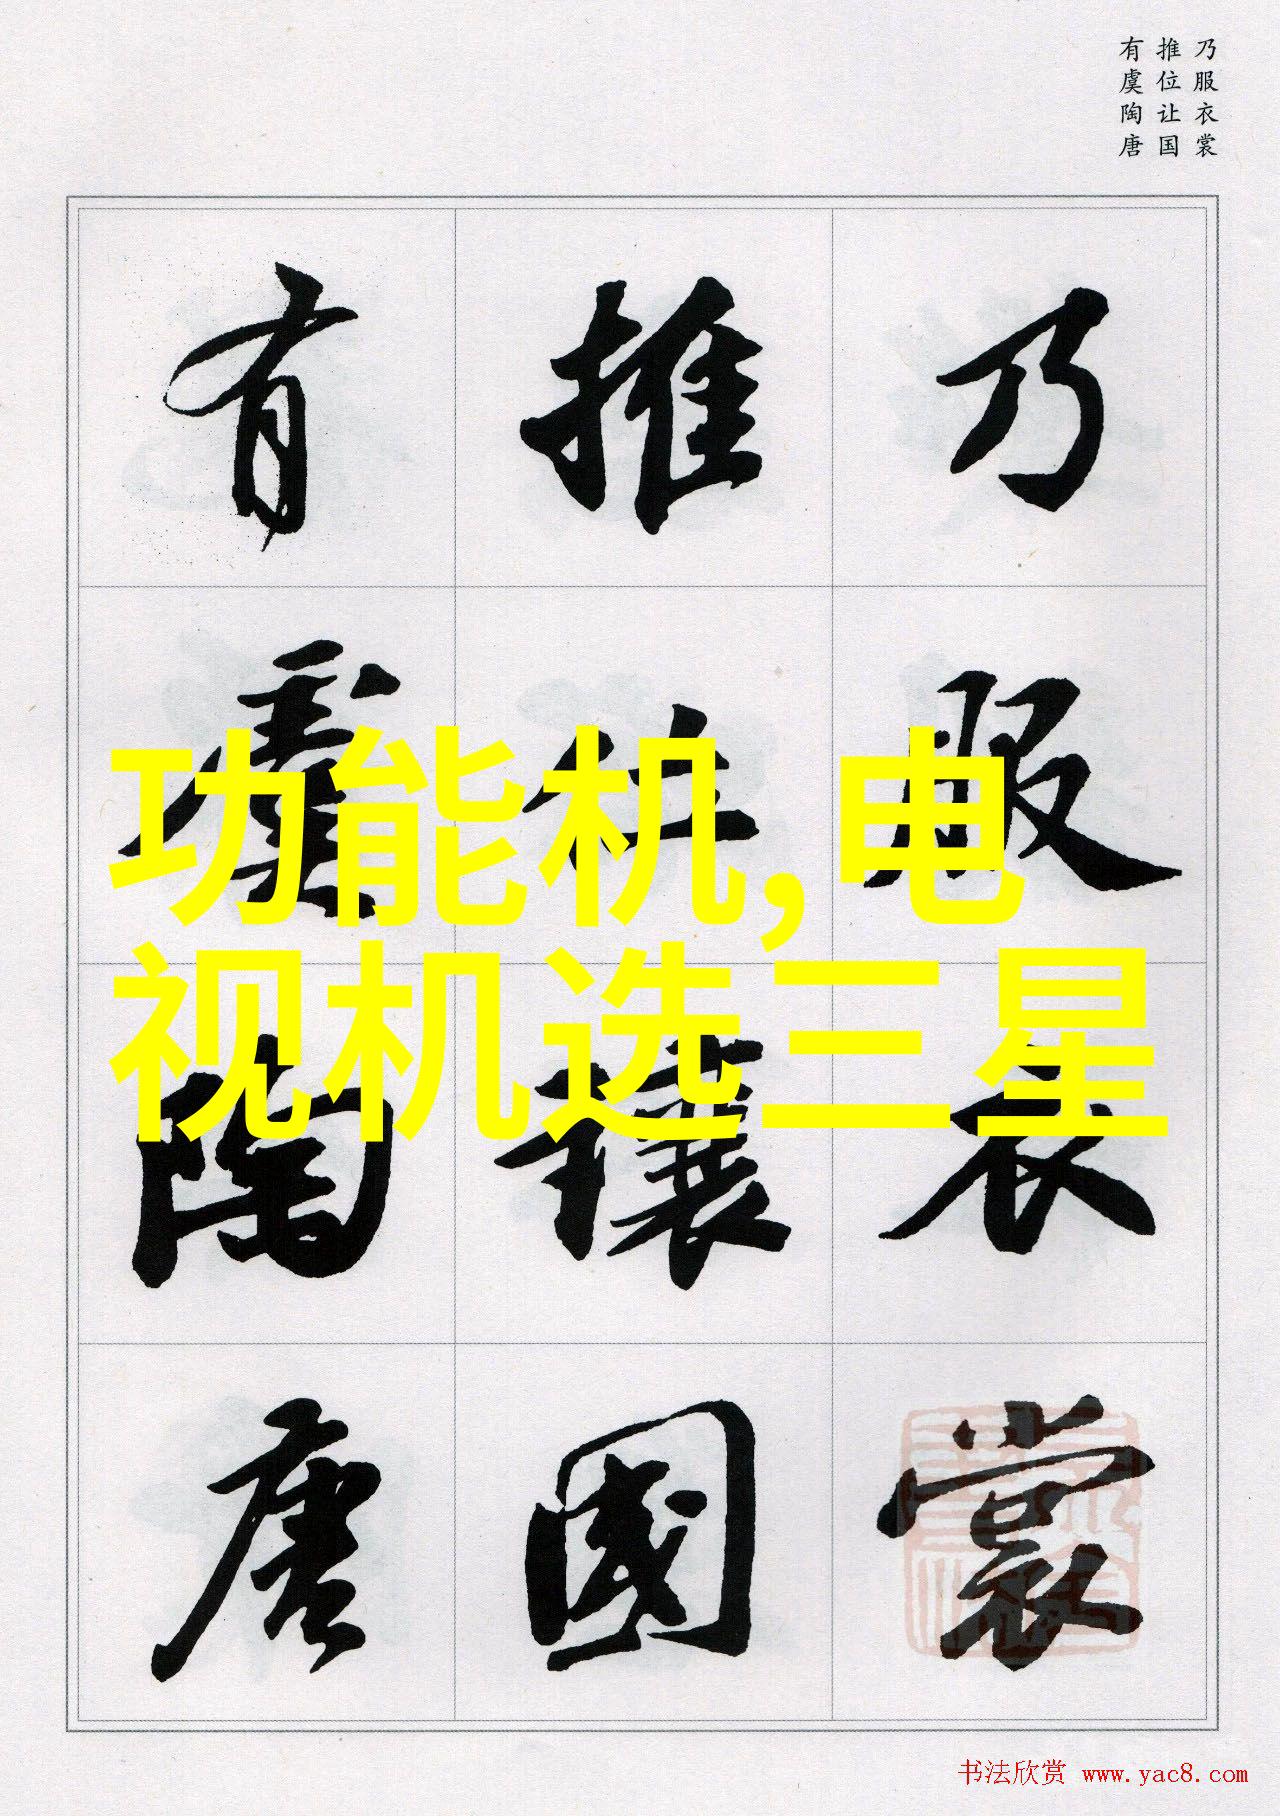 乃服衣裳
推位让国
有虞陶唐
乃服衣裳
推位讓國
有虞陶唐
功能机,电
视机选三星
书法欣赏 www.yac8.com